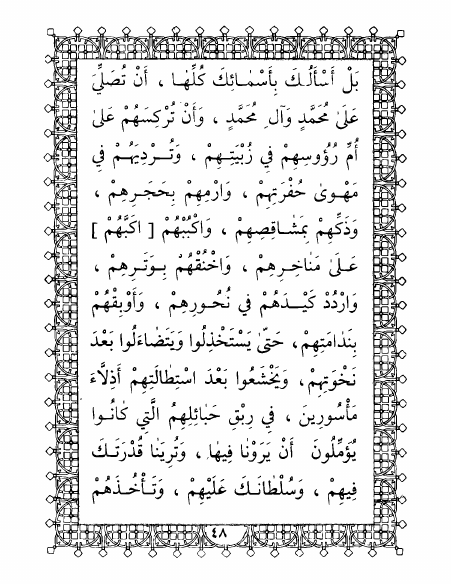 بَلْ أَسْأَلُكَ بِأَسْمَائِكَ كُلِّهَا ، أَنْ تُصَلِّيَ
عَلىٰ مُحَمَّدٍ وَآلِ مُحَمَّدٍ ، وَأَنْ تُرْكِسَهُمْ عَلىٰ
أُمِّ رُؤُوسِهِمْ فِي زُبْيَتِهِمْ ، وَتُرْدِيَهُمْ فِي
مَهْوىٰ حُفْرَتِهِمْ ، وَارْمِهِمْ بِحَجَرِهِمْ ،
وَذَكِّهِمْ بِمَشَاقِصِهِمْ ، وَاكْبُبْهُمْ [ اكَبَّهُمْ ]
عَلىٰ مَنَاخِرِهِمْ ، وَاخْنُقْهُمْ بِوَتَرِهِمْ ،
وَارْدُدْ كَيْدَهُمْ فِي نُحُورِهِمْ ، وَأَوْبِقْهُمْ
بِنَدَامَتِهِمْ، حَتّىٰ يَسْتَخْذِلُوا وَيَتَضَاءَلُوا بَعْدَ
نَخْوَتِهِمْ، وَيَخْشَعُوا بَعْدَ اسْتِطَالَتِهِمْ أَذِلَّاءَ
مَأْسُورِينَ ، فِي رِبْقِ حَبَائِلِهِمُ الَّتِي كَانُوا
يُؤَمِّلُونَ أَنْ يَرَوْنَا فِيهَا ، وَتُرِيَنَا قُدْرَتَكَ
فِيهِمْ ، وَسُلْطَانَكَ عَلَيْهِمْ ، وَتَأْخُذَهُمْ
٤٨